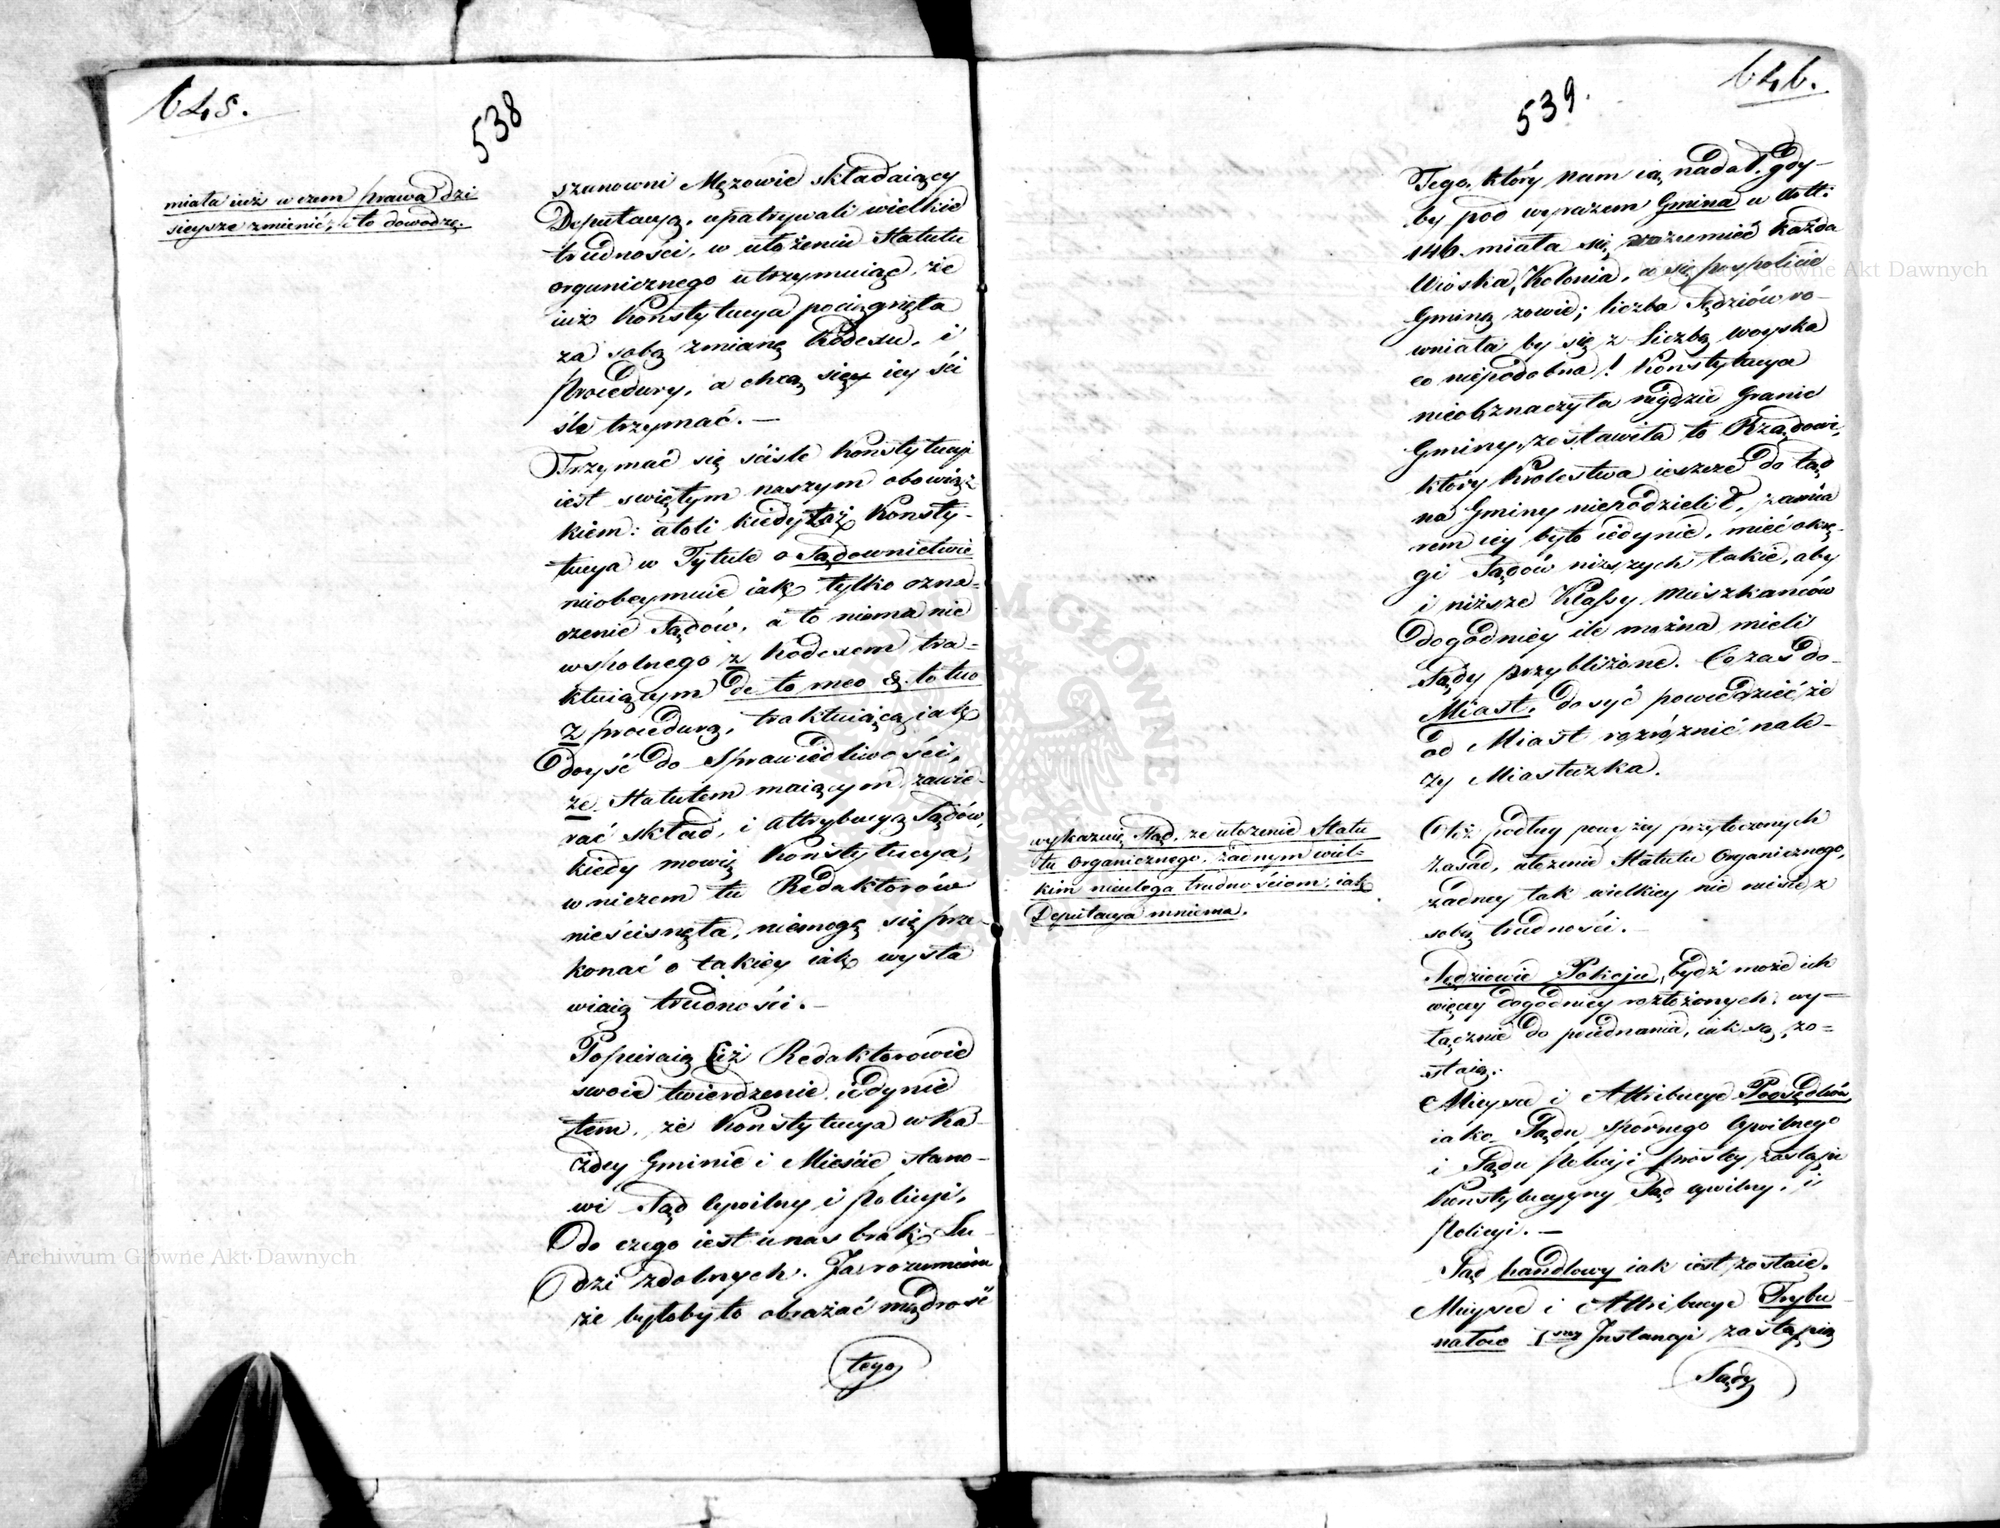 645.
538
miała iuż w czem prawa dzi
sieysze zmienić, i to dowodzę.
szanowni Mężowie składaiący
Deputacyą, upatrywali wielkie
trudności, w ułożeniu Statutu
organicznego utrzymuiąc, że
iuż Konstytucya pociągnęła
za sobą zmianę Kodexu, i
Procedury, a chcą się iey ści
śle trzymać. —
Trzymać się ściśle Konstytucyi
iest swiętym naszym obowiąz
kiem: atoli kiedy taż Konsty-
tucya w Tytule o Sądownictwie
nieobeymuie iak tylko ozna-
czenie Sądów, a to niema nic
wspolnego z Kodexem tra-
ktuiącym de to meo & to tuo
z procedurą, traktuiącą iak
doyść do Sprawiedliwości,
ze Statutem maiącym zawie-
rać skład, i attrybucyą Sądów,
kiedy mowię Konstytucya,
w niczem tu Redaktorów
nieścisnęła, niemogę się prze-
konać o takiey iak wysta
wiaią trudności. —
Popieraią też Redaktorowie
swoie twierdzenie iedynie
tem, że Konstytucya w Ka-
żdey Gminie i Mieście stano-
wi Sąd Cywilny i Policyi,
do czego iest u nas brak Lu-
dzi zdolnych. Ja rozumiem
że byłoby to obrażać mądrość
tego
539.
646.
Tego, który nam ią nadał, gdy-
by pod wyrazem Gmina w Artt:
146. miała się rozumieć każda
Wioska, Kolonia, co się pospolicie
Gminą zowie; liczba Sędziów ro-
wniała by się z liczbą woyska
co niepodobna! Konstytucya
nieoznaczyła nigdzie Granic
Gminy, zostawiła to Rządowi,
który Krolestwa ieszcze do tąd
na Gminy nierozdzielił, zamia
rem iey było iedynie, mieć okrę-
gi Sądów niższych takie, aby
i niższe Klassy Mieszkańców
dogodniey ile można mieli
Sądy przybliżone. Co zaś do
Miast, dosyć powiedzieć że
od Miast rozróżnić nale-
ży Miasteczka.
wykazuię stąd, ze ułozenie Statu
tu Organicznego, żadnym wiel-
kim nieulega trudnościom, iak
Deputacya mniema.
Otóż podług powyżey przytoczonych
zasad, ułożenie Statutu Organicznego,
żadney tak wielkiey nie niesie z
sobą trudności. —
Sędziowie Pokoju, bydź może ich
więcey dogodniey rozłożonych, wy-
łącznie do pojednania, iak są, zo-
staią.
Mieysce i Attribucye Podsędków,
iako Sądu spornego Cywilnego
i Sądu Policyi prostey zastąpi
Konstytucyyny Sąd cywilny, i
Policyi. —
Sąd handlowy iak iest zostaie.
Mieysce i Attribucye Trybu-
nałow Iszey Instancyi zastąpią
Sądy
Archiwum Główne Akt Dawnych
Archiwum Główne Akt Dawnych